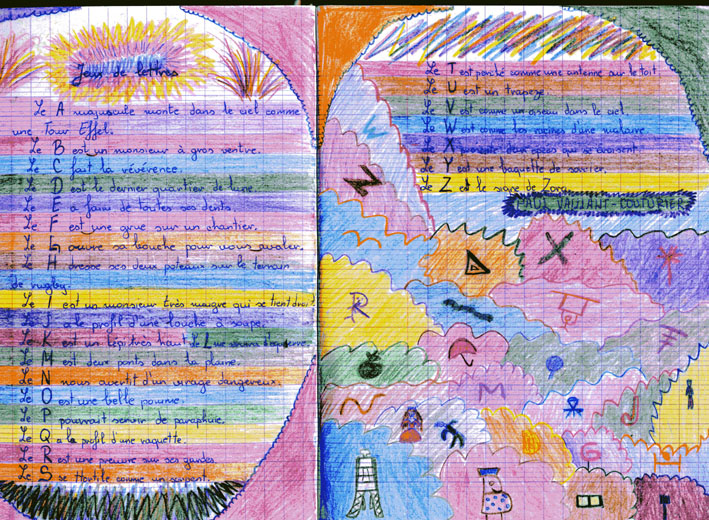 Jeux de lettres
Le A majuscule monte dans le ciel comme
une Tour Effel.
Le B est un monsieur à gros ventre.
Le C fait la révérence.
Le D est le dernier quartier de lune.
Le E a faim de toutes ses dents.
Le F est une grue sur un chantier.
Le G ouvre sa bouche pour vous avaler.
Le H dresse ses deux poteaux sur le terrain
de rugby.
Le I est un monsieur très maigre qui se tient droit.
Le J a le profil d'une louche à soupe.
Le K est un très haut le L une
Le M est deux ponts dans la plaine.
Le N nous avertit d'un virage dangereux.
Le O est une belle pomme.
Le P pourrait servir de parapluie.
Le Q a le profil d'une raquette.
Le R est une sur ses gardes.
Le S se tortille comme un serpent.
Le T est perché comme une antenne sur le toit
Le U est un trapeze.
Le V est comme un oiseau dans le ciel.
Le W est comme les racines d'une molaire.
Le X deux épées qui se croisent.
Le Y est une baguette de sorcier.
Le Z est le signe de Zorro.
PAUL VAILLANT-COUTURIER